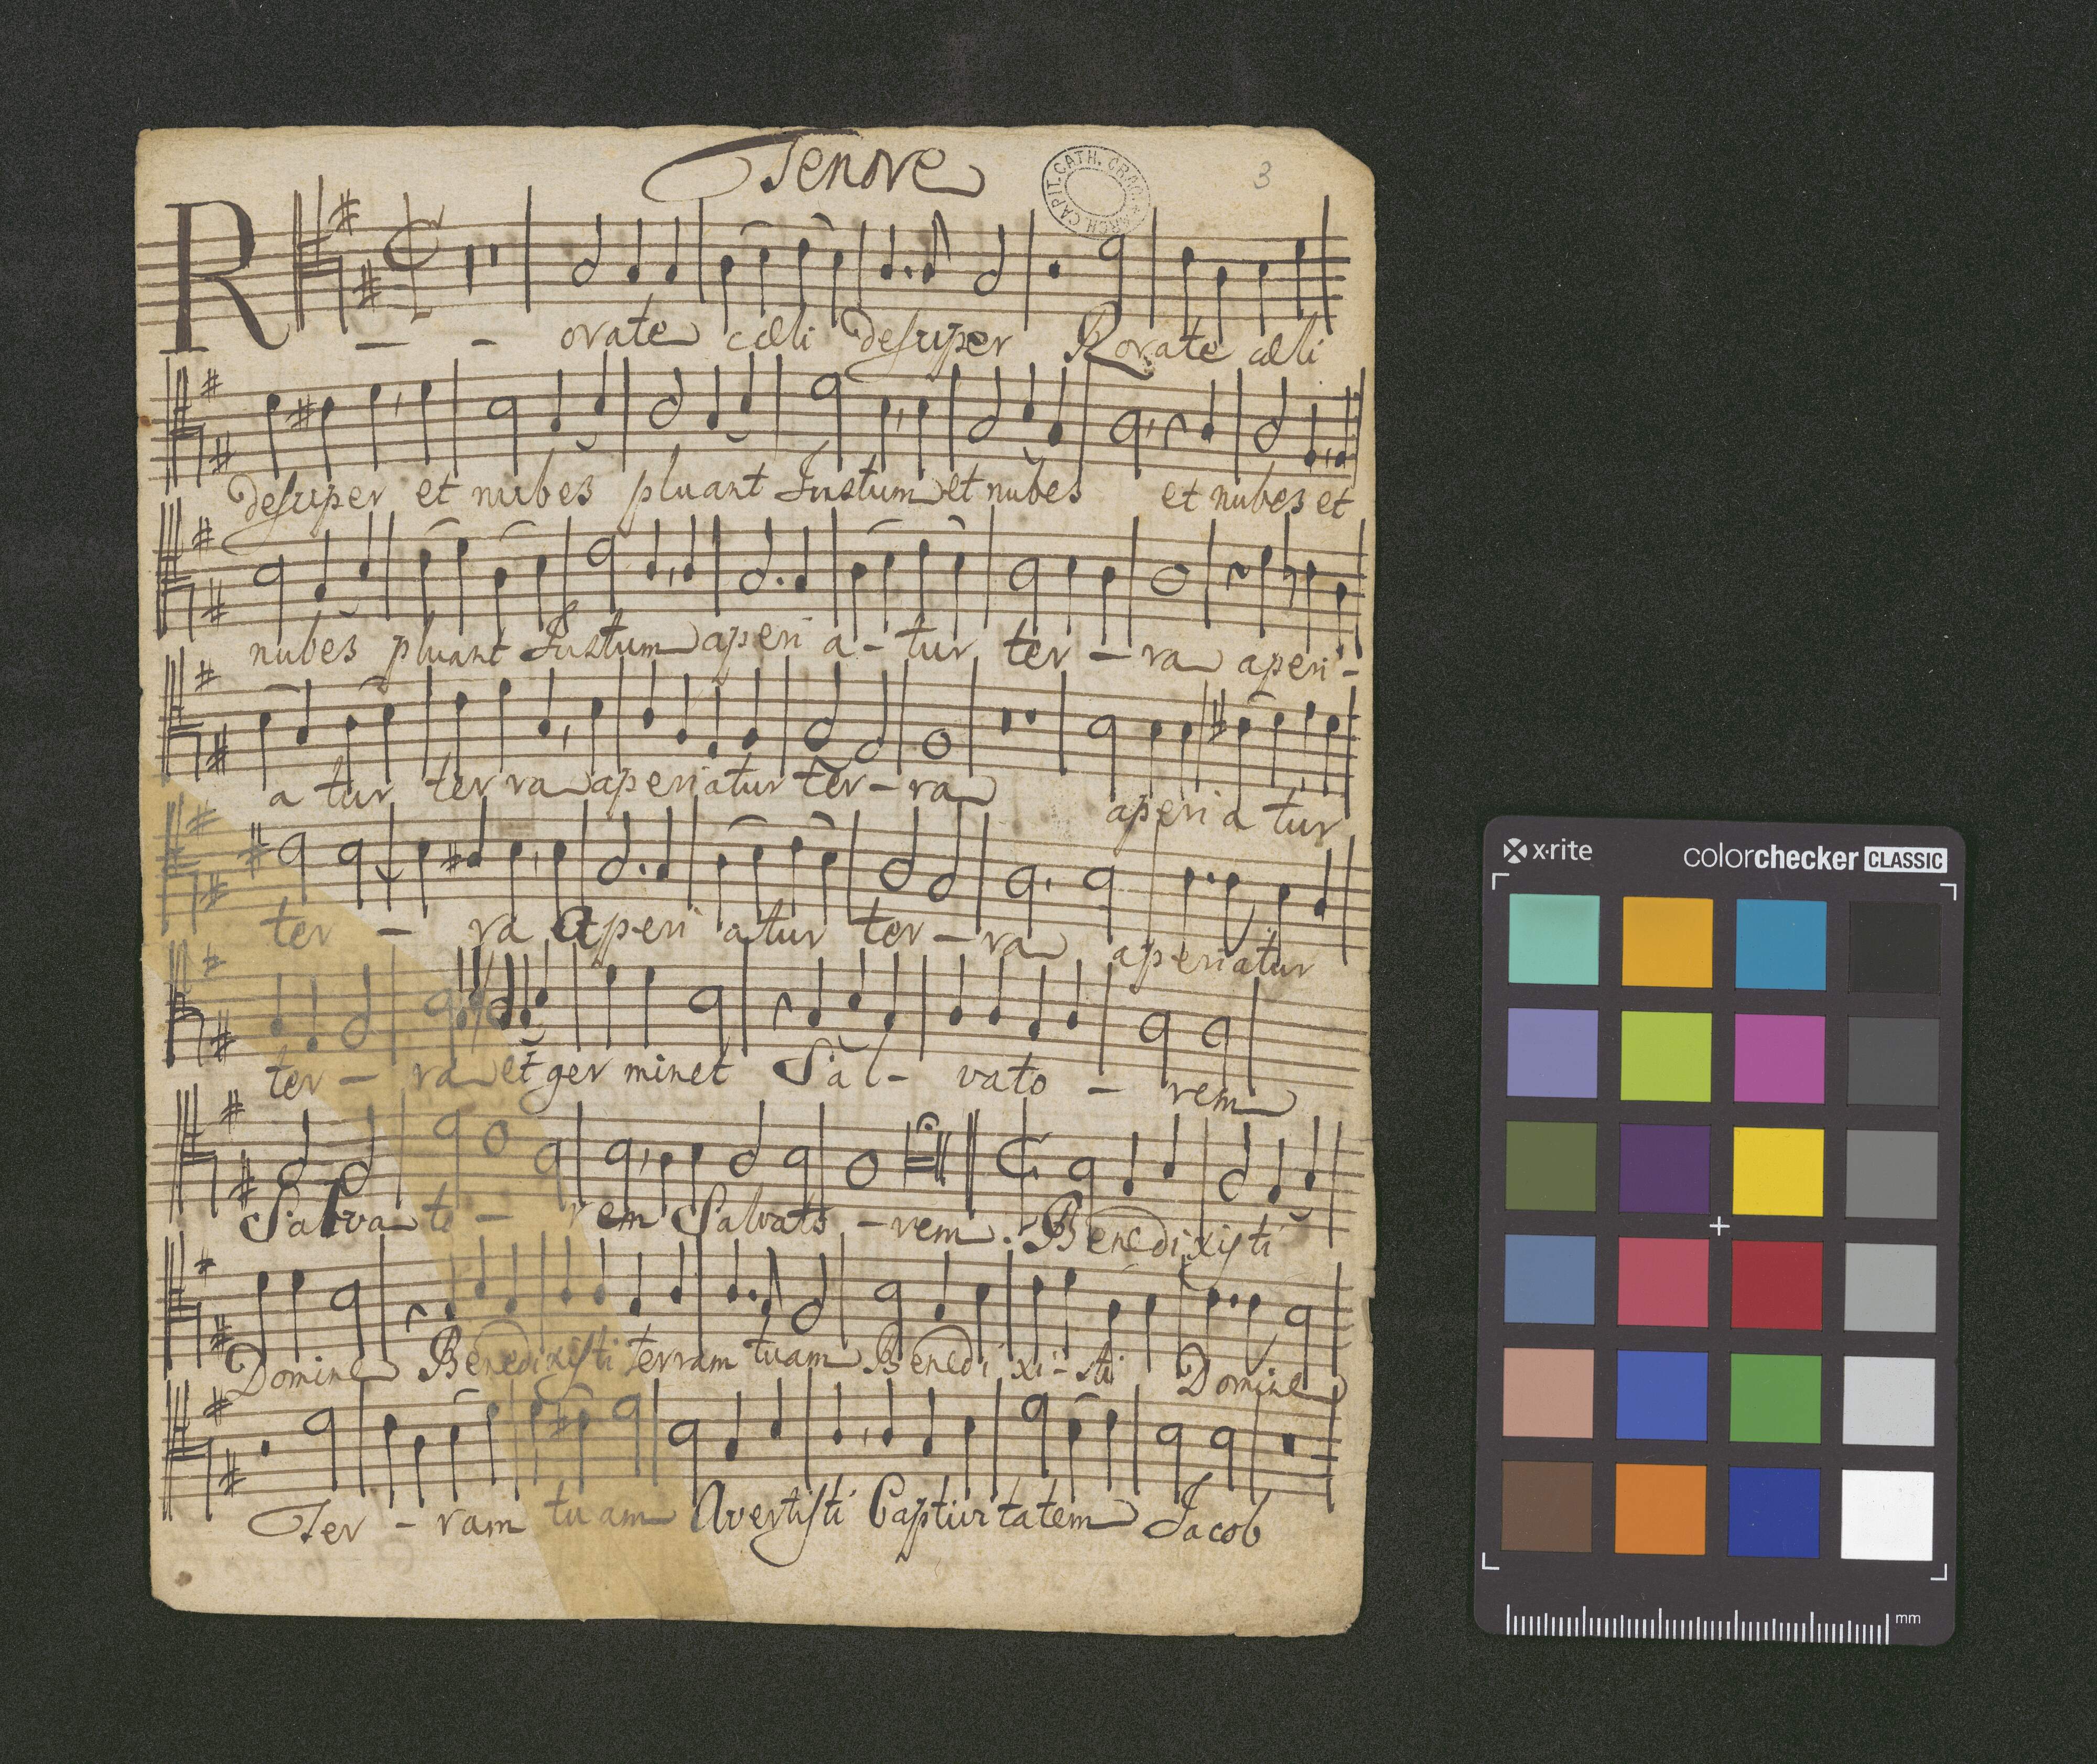 Tenore
ARCH. CAPIT. CATH. CRAC.
3
R - - orate cæli desuper Rorate cæli
desuper et nubes pluant Justum et nubes et nubes et
nubes pluant Justum aperi a - tur ter - ra aperi -
a tur ter ra aperiatur ter - ra aperi a tur
ter - ra Aperi atur ter - ra aperiatur
ter - ra et ger minet Sal - vato - rem
Salva to - rem Salvato - rem. Benedixisti
Domine Benedixisti terram tuam Benedi xi - sti Domine
Ter - ram tuam Avertisti Captivitatem Jacob
x·rite
colorchecker CLASSIC
mm